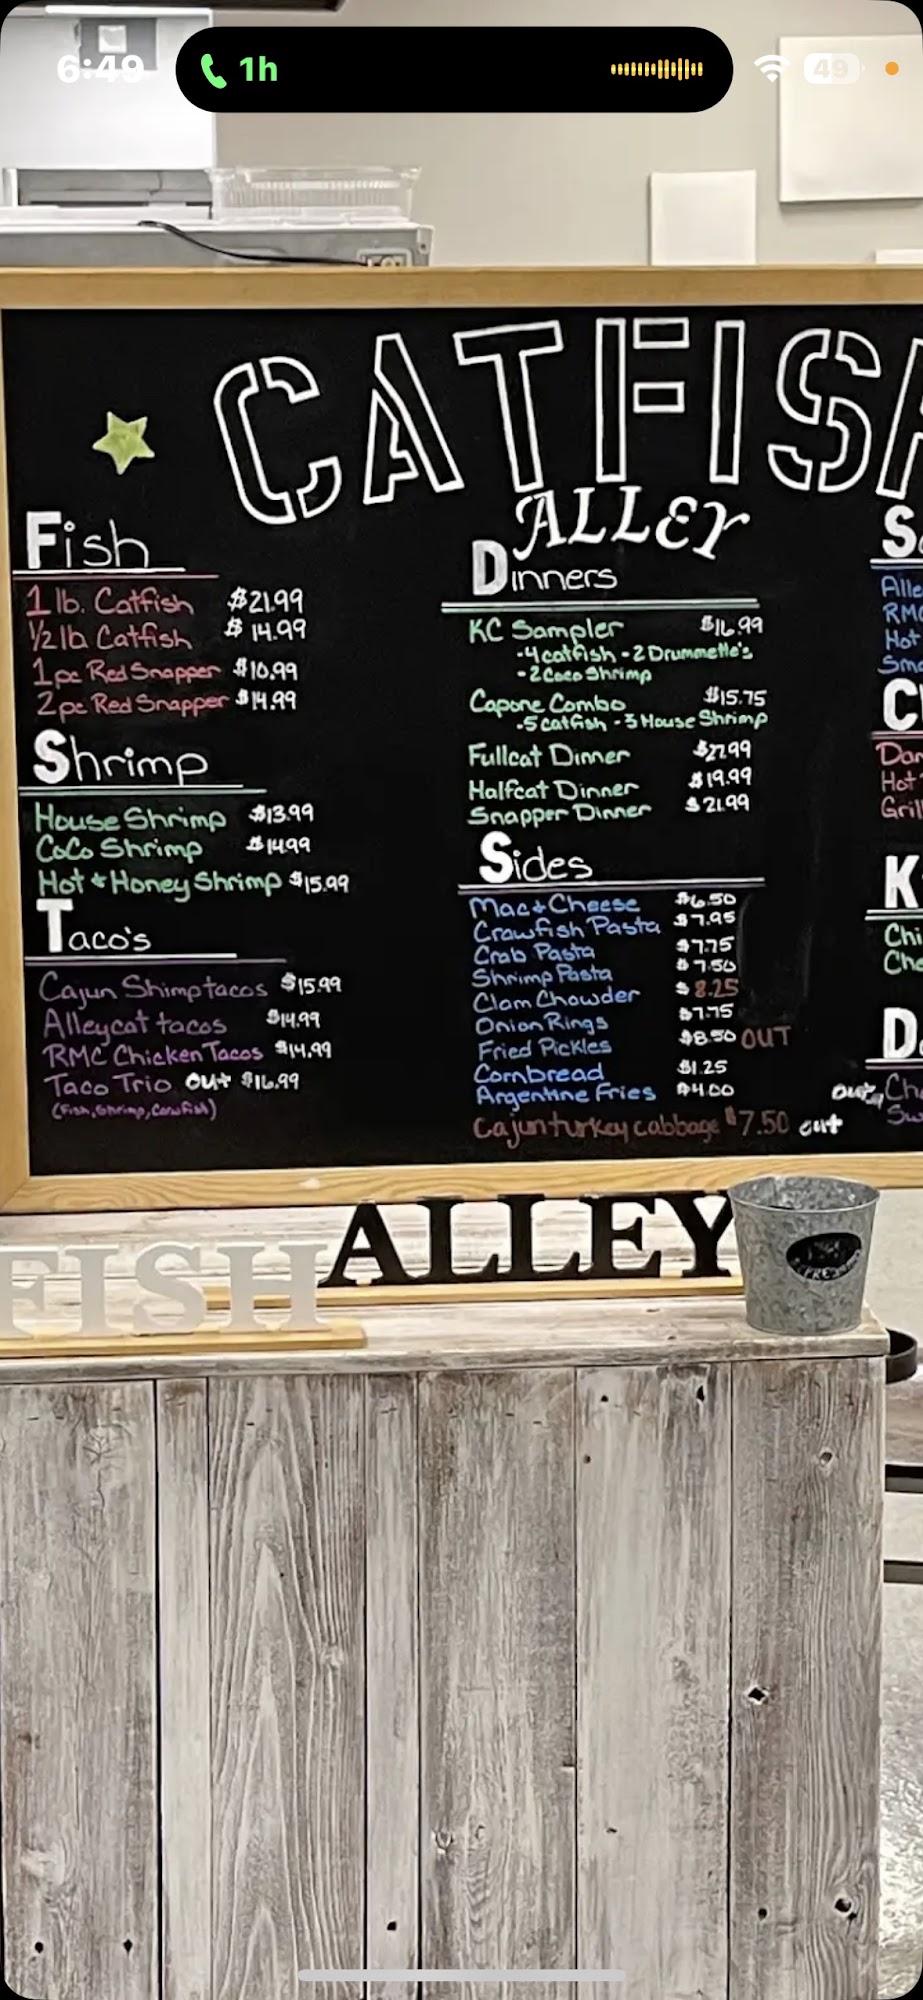 6:49
1h
49
CATFISH
ALLEY
Fish
1 lb. Catfish $21.99
1/2 lb Catfish $14.99
1pc Red Snapper $10.99
2pc Red Snapper $14.99
Shrimp
House Shrimp $13.99
CoCo Shrimp $14.99
Hot & Honey Shrimp $15.99
Taco's
Cajun Shimp tacos $15.99
Alleycat tacos $14.99
RMC Chicken Tacos $14.99
Taco Trio Out $16.99
(Fish, Shrimp, Crawfish)
Dinners
KC Sampler $16.99
-4 catfish -2 Drummette's
-2 Coco Shrimp
Capone Combo $15.75
-5 Catfish -3 House Shrimp
Fullcat Dinner $27.99
Halfcat Dinner $19.99
Snapper Dinner $21.99
Sides
Mac & Cheese $6.50
Crawfish Pasta $7.95
Crab Pasta $7.75
Shrimp Pasta $7.50
Clam Chowder $8.25
Onion Rings $7.75
Fried Pickles $8.50 OUT
Cornbread $1.25
Argentine Fries $4.00
Cajun turkey cabbage $7.50 out
S
Alle
RMC
Hot
Smo
C
Dar
Hot
Gril
K
Chi
Che
D
out Ch
Su
FISH ALLEY